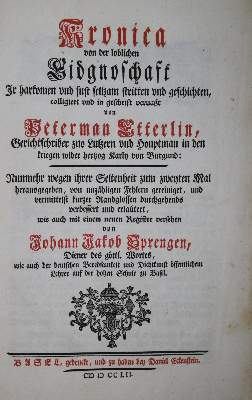 Kronica
von der loblichen
Eidgnoschaft
Jr harkomen und sust seltzam stritten und geschichten,
colligiert und in geschrift verfaßt
von
Peterman Etterlin,
Gerichtschriber zuo Lutzern und Houptman in den
kriegen wider hertzog Karly von Burgund:
Nunmehr wegen ihrer Seltenheit zum zweyten Mal
herausgegeben, von unzähligen Fehlern gereiniget, und
vermittelst kurzer Randglossen durchgehends
verbessert und erläutert,
wie auch mit einem neuen Register versehen
von
Johann Jakob Sprengen,
Diener des göttl. Wortes,
wie auch der deutschen Beredsamkeit und Dichtkunst öffentlichem
Lehrer auf der hohen Schule zu Basel.
BASEL, gedruckt, und zu haben bey Daniel Eckenstein.
CIƆ IƆ CC LII.